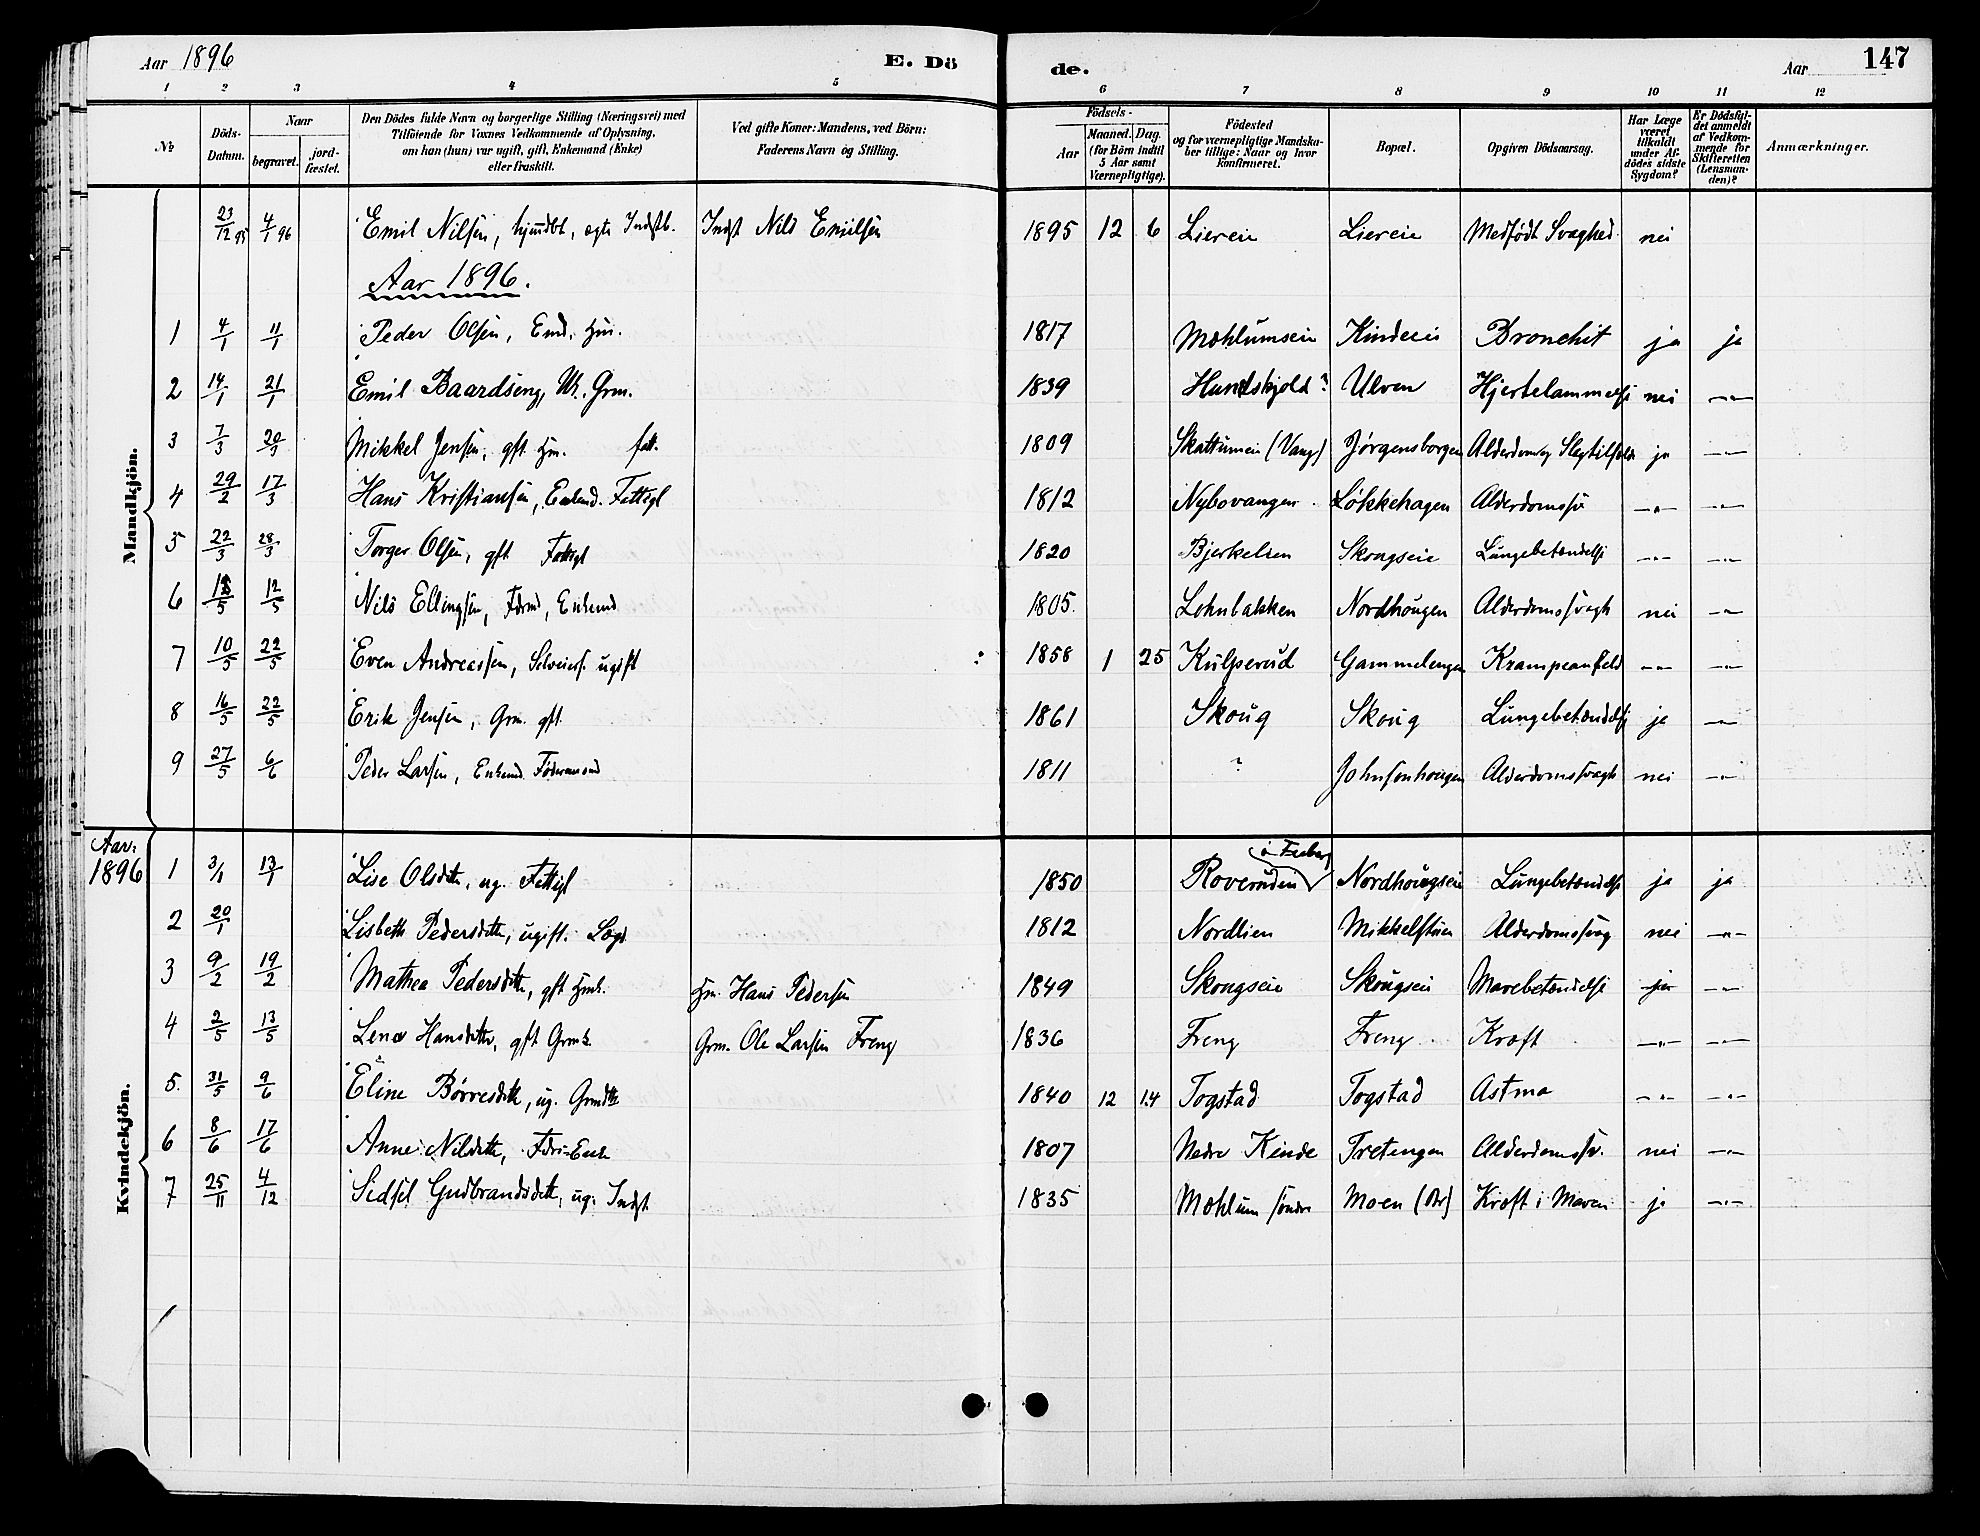 Aar 1896
E. Dö
de.
Aar
147
1 2 3 4 5 6 7 8 9 10 11 12
No
Döds-
Datum.
Naar
begravet.
jord-
fæstet.
Den Dödes fulde Navn og borgerlige Stilling (Næringsvei) med
Tilföiende for Voxnes Vedkommende af Oplysning,
om han (hun) var ugift, gift, Enkemand (Enke)
eller fraskilt.
Ved gifte Koner: Mandens, ved Börn:
Faderens Navn og Stilling.
Födsels-
Aar
Maaned. Dag.
(for Börn indtil
5 Aar samt
Værnepligtige).
Födested
og for værnepligtige Mandska-
ber tillige: Naar og hvor
konfirmeret.
Bopæl.
Opgiven Dödsaarsag.
Har Læge
været
tilkaldt
under Af-
dödes sidste
Sygdom?
Er Dödsfal-
det anmeldt
af Vedkom-
mende for
Skifteretten
(Lensman-
den)?
Anmærkninger.
Mandkjön.
23/12 95 4/1 96 Emil Nilsen, hjmdbt, ægte Indstb. Indst Nils Emilsen 1895 12 6 Liereie Liereie Medfödt Svaghed nei
Aar 1896.
1 4/1 11/1 Peder Olsen, Hm. 1817 Mæhlumseie Kindeeie Bronchit ja ja
2 14/1 21/1 Emil Baardseng, Grm. 1839 Hundskjold? Ulven Hjertelammelse nei —"—
3 7/3 20/3 Mikkel Jensen, gft Hm. fatt. 1809 (Vang) Jörgensborgen Alderdom og ja —"—
4 29/2 17/3 Hans Kristiansen, Enkemd. Fattigl 1812 Nybovangen Lökkehagen Alderdomssv —"— —"—
5 22/3 28/3 Torger Olsen, gft Fattigl 1820 Bjerkelien Skougseie Lungebetændelse —"— —"—
6 12/5 Nils Ellingsen, Födrmd, Enkemd 1805. Lohnbakken Nordhougen Alderdomssvagh nei —"—
7 10/5 22/5 Even Andreassen, Selveiers. ugift 1858 1 25 Kulpsrud Gammelengen Krampeanfald —"— —"—
8 16/5 22/5 Erik Jensen, Grm. gft 1861 Skoug Skoug Lungebetændelse ja —"—
9 27/5 6/6 Peder Larsen, Enkemd. Födermand 1811 ? Johnsenhougen Alderdomssvagh nei —"—
Kvindekjön.
Aar:
1896 1 3/1 13/1 Lise Olsdtr, ug. Fattigl 1850 Roverudeie Nordhougseie Lungebetændelse ja ja
2 20/1 Lisbeth Pedersdtr, ugift. Lægd 1812 Nordlien Mikkelstuen Alderdomssvag nei —"—
3 9/2 19/2 Mathea Pedersdtr, gft Hmk. Hm. Hans Pedersen 1849 Skougseie Skougseie Mavebetændelse ja —"—
4 2/5 13/5 Lena Hansdtr, gft Grmk. Grm. Ole Larsen Freng 1836 Freng Freng Kræft —"— —"—
5. 31/5 9/6 Eline Börresdtr, ug. Grmdtr 1840 12 14 Togstad Togstad Astma —"— —"—
6 8/6 17/6 Anne Nilsdtr, Födr-Enke 1807 Nedre Kinde Tretengen Alderdomssv. nei —"—
7 25/11 4/12 Sidsel Gudbrandsdtr, ug. Indst 1835 Mæhlum söndre Moen Kræft i Maven ja —"—